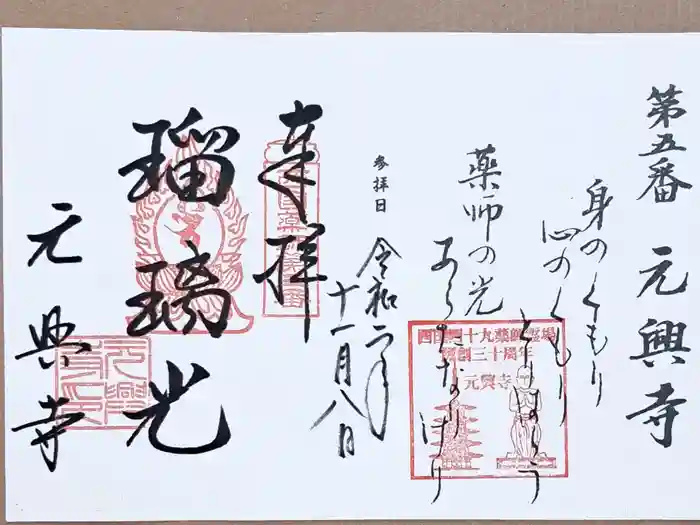 第五番 元興寺
身のくもり
心のくもり
とりはらう
薬師の光
あらたなりけり
参拝日
令和二年
十一月八日
奉拝
瑠璃光
元興寺
西国四十九薬師霊場
開創三十周年
元興寺